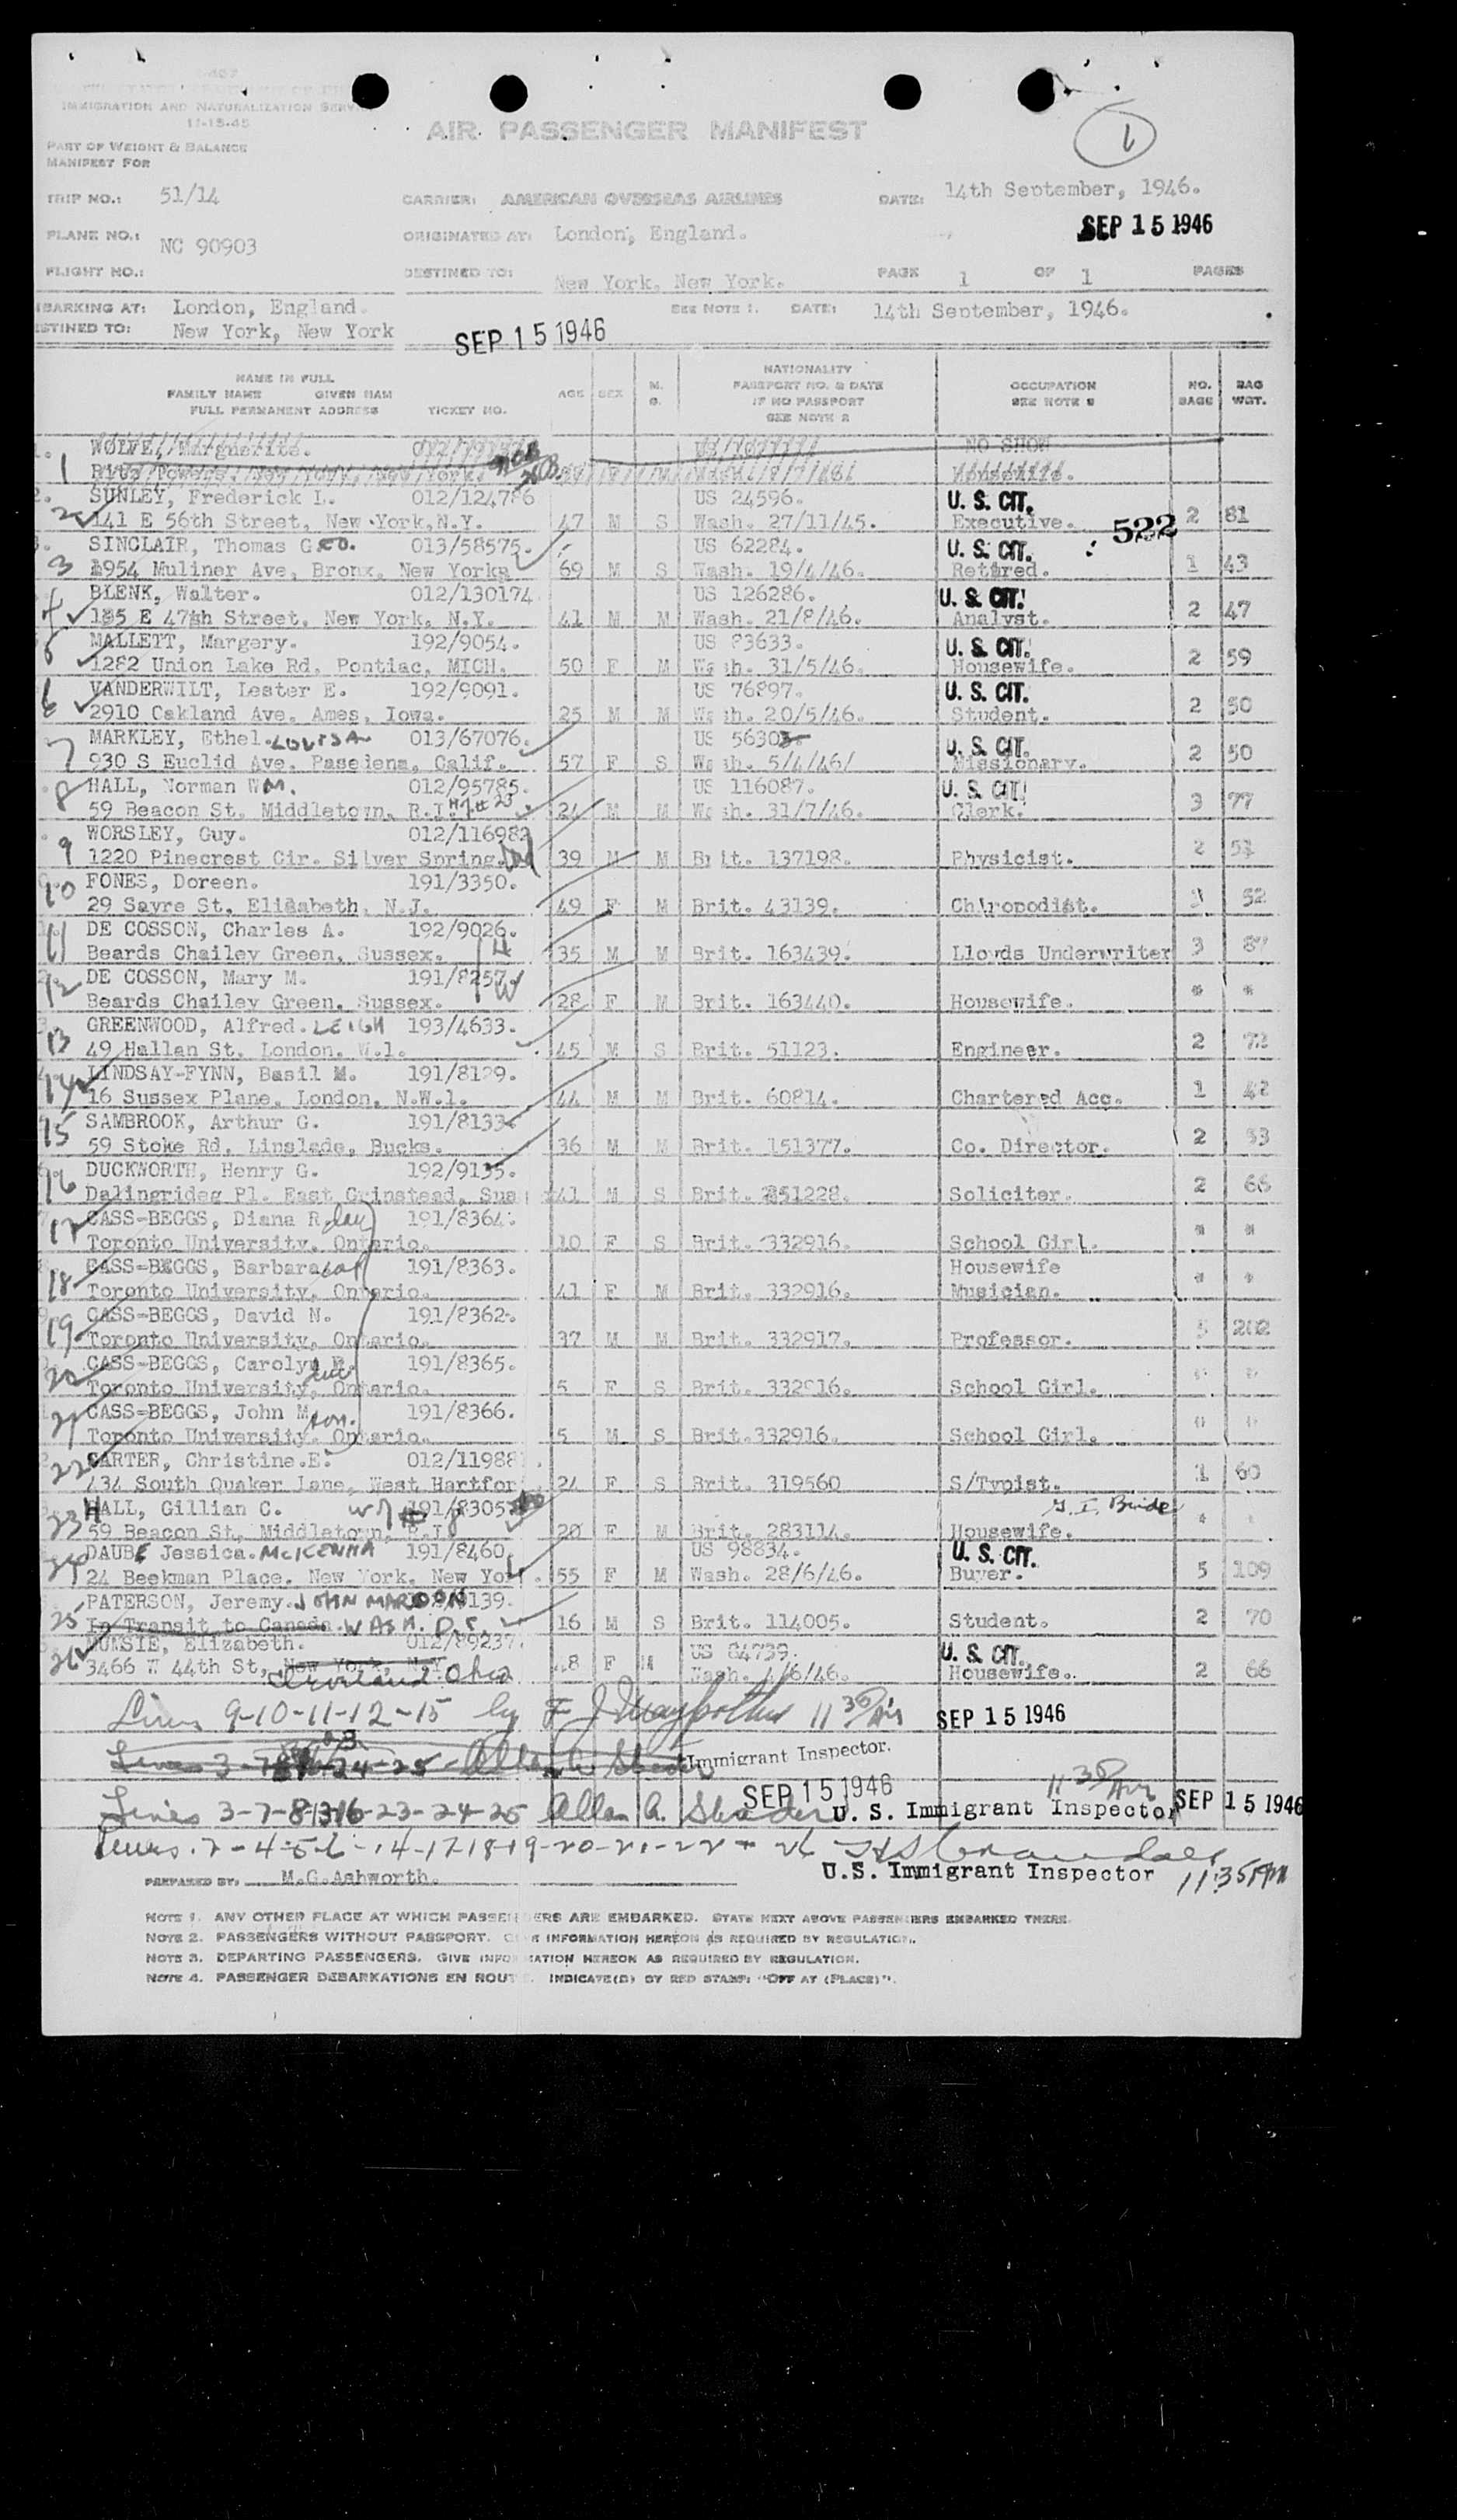 IMMIGRATION AND NATURALIZATION
11-15-45
AIR PASSENGER MANIFEST
1
PART OF WEIGHT & BALANCE
MANIFEST FOR
TRIP NO.: 51/14 CARRIER: AMERICAN OVERSEAS AIRLINES DATE: 14th September, 1946.
SEP 15 1946
PLANE NO.: NC 90903 ORIGINATED AT: London, England.
FLIGHT NO.: DESTINED TO: New York, New York. PAGE 1 OF 1 PAGES
BARKING AT: London, England. SEE NOTE 1. DATE: 14th September, 1946.
STINED TO: New York, New York SEP 15 1946
NAME IN FULL
FAMILY NAME GIVEN NAM
FULL PERMANENT ADDRESS TICKET NO. AGE SEX M. NATIONALITY PASSPORT NO. & DATE IF NO PASSPORT SEE NOTE 2 OCCUPATION NO. BAGS BAG WGT.
WOLVE, Marguerite. NO SHOW
1 Ritz Towers, New York, New York. Housewife.
SUNLEY, Frederick L. 012/124786 US 24596. U. S. CIT.
2 141 E 56th Street, New York, N.Y. 47 M S Wash. 27/11/45. Executive. 522 2 81
SINCLAIR, Thomas GEO. 013/58575. US 62284. U. S. CIT.
3 1954 Muliner Ave, Bronx, New York 69 M S Wash. 19/4/46. Retired. 1 43
BLENK, Walter. 012/130174 US 126286. U. S. CIT.
4 135 E 47th Street, New York, N.Y. 41 M M Wash. 21/8/46. Analyst. 2 47
MALLETT, Margery. 192/9054. US 83633. U. S. CIT.
5 1282 Union Lake Rd, Pontiac, MICH. 50 F M Wash. 31/5/46. Housewife. 2 59
VANDERWILT, Lester E. 192/9091. US 76897. U. S. CIT.
6 2910 Oakland Ave. Ames, Iowa. 25 M M Wash. 20/5/46. Student. 2 50
MARKLEY, Ethel. LOUISA 013/67076. US 56303 U. S. CIT.
7 930 S Euclid Ave. Pasedena, Calif. 57 F S Wash. 5/4/46/ Missionary. 2 50
HALL, Norman WM. 012/95785. US 116087. U. S. CIT.
8 59 Beacon St. Middletown, R.I. H/# 23 24 M M Wash. 31/7/46. Clerk. 3 77
WORSLEY, Guy. 012/116982
9 1220 Pinecrest Cir. Silver Spring. Md 39 M M Brit. 137198. Physicist. 2 53
FONES, Doreen. 191/3350.
10 29 Sayre St, Elizabeth, N.J. 49 F M Brit. 43139. Chiropodist. 3 52
DE COSSON, Charles A. 192/9026.
11 Beards Chailey Green, Sussex. H 35 M M Brit. 163439. Lloyds Underwriter 3 87
DE COSSON, Mary M. 191/8257.
12 Beards Chailey Green, Sussex. W 28 F M Brit. 163440. Housewife. * *
GREENWOOD, Alfred. LEIGH 193/4633.
13 49 Hallan St, London, W.1. 45 M S Brit. 51123. Engineer. 2 72
LINDSAY-FYNN, Basil M. 191/8129.
14 16 Sussex Plane, London, N.W.1. 44 M M Brit. 60814. Chartered Acc. 1 42
SAMBROOK, Arthur G. 191/8133
15 59 Stoke Rd, Linslade, Bucks. 36 M M Brit. 151377. Co. Director. 2 53
DUCKWORTH, Henry G. 192/9135.
16 Dalingrideg Pl. East Grinstead, Sus 41 M S Brit. 251228. Soliciter. 2 66
CASS-BEGGS, Diana R. dau 191/8364.
17 Toronto University, Ontario. 10 F S Brit. 332916. School Girl. * *
CASS-BEGGS, Barbara 191/8363. Housewife
18 Toronto University, Ontario. 41 F M Brit. 332916. Musician. * *
CASS-BEGGS, David N. 191/8362.
19 Toronto University, Ontario. 37 M M Brit. 332917. Professor. 5 202
CASS-BEGGS, Carolyn 191/8365.
20 Toronto University, Ontario. 5 F S Brit. 332916. School Girl.
CASS-BEGGS, John M. son. 191/8366.
21 Toronto University, Ontario. 5 M S Brit. 332916. School Girl.
CARTER, Christine.E. 012/11988
22 434 South Quaker Lane, West Hartfor 24 F S Brit. 319560 S/Typist. 1 60
HALL, Gillian C. W/# 8 191/8305 G. I. Bride
23 59 Beacon St, Middletown, R.I. 20 F M Brit. 283114. Housewife. *
DAUBE Jessica. McKENNA 191/8460 US 98834. U. S. CIT.
24 24 Beekman Place, New York, New Yor 55 F M Wash. 28/6/46. Buyer. 5 109
PATERSON, Jeremy. JOHN MARDON 139.
25 In Transit to Canada. WASH. D.C. 16 M S Brit. 114005. Student. 2 70
MUNSIE, Elizabeth. 012/89237. US 84739. U. S. CIT.
26 3466 W 44th St, New York, N.Y. Cleveland Ohio 48 F M Wash. 4/6/46. Housewife. 2 66
Lines 9-10-11-12-15 by F J 11 35 SEP 15 1946
Immigrant Inspector.
SEP 15 1946 11 35
Lines 3-7-8-13-16-23-24-25 Allen A. U. S. Immigrant Inspector SEP 15 1946
Lines 2-4-5-6-14-17-18-19-20-21-22-26
U.S. Immigrant Inspector 11:35 PM
PREPARED BY: M.G.Ashworth.
NOTE 1. ANY OTHER PLACE AT WHICH PASSENGERS ARE EMBARKED. STATE NEXT ABOVE PASSENGERS EMBARKED THERE.
NOTE 2. PASSENGERS WITHOUT PASSPORT. GIVE INFORMATION HEREON AS REQUIRED BY REGULATION.
NOTE 3. DEPARTING PASSENGERS. GIVE INFORMATION HEREON AS REQUIRED BY REGULATION.
NOTE 4. PASSENGER DEBARKATIONS EN ROUTE. INDICATE(D) BY RED STAMP: "OFF AT (PLACE)".